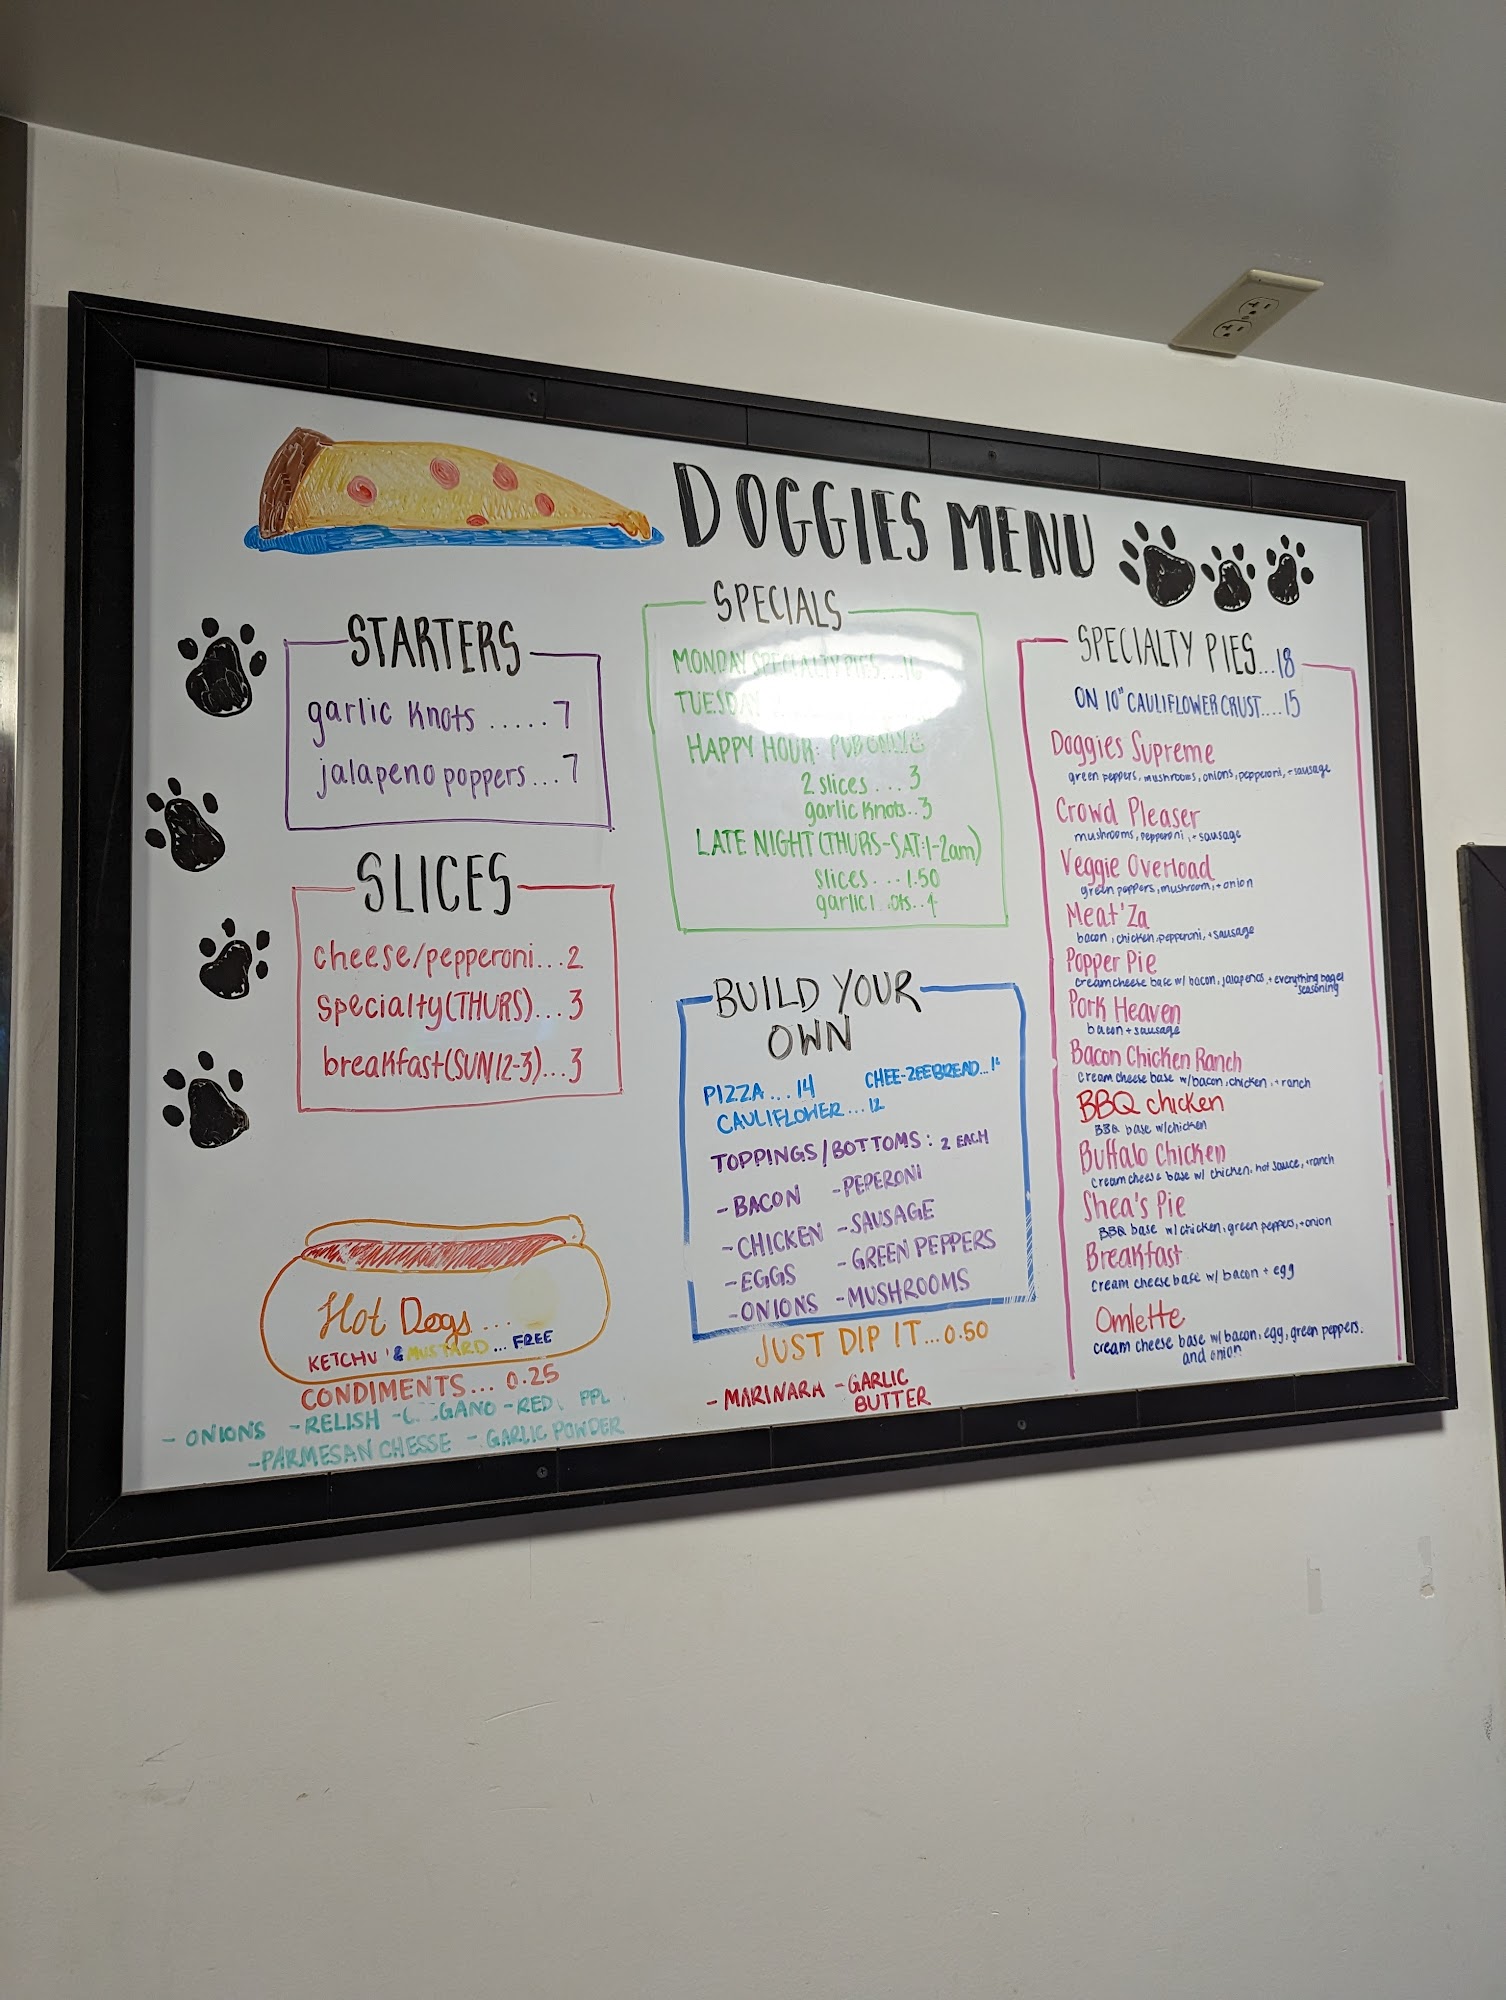 DOGGIES MENU
STARTERS
garlic knots.....7
jalapeno poppers...7
SLICES
cheese/pepperoni...2
specialty(THURS)...3
breakfast(SUN 12-3)...3
Hot Dogs...
& MUSTARD... FREE
CONDIMENTS... 0.25
- ONIONS - RELISH - RED
- PARMESAN CHESSE - GARLIC POWDER
SPECIALS
MONDAY SPECIALTY PIES...16
TUESDAY
HAPPY HOUR: PUB ONLY
2 slices...3
garlic knots..3
LATE NIGHT(THURS-SAT:1-2am)
slices...1.50
BUILD YOUR
OWN
PIZZA...14 CHEE-ZEE BREAD...
CAULIFLOWER...12
TOPPINGS/BOTTOMS: 2 EACH
- BACON - PEPERONI
- CHICKEN - SAUSAGE
- EGGS - GREEN PEPPERS
- ONIONS - MUSHROOMS
JUST DIP IT...0.50
- MARINARA - GARLIC
BUTTER
SPECIALTY PIES...18
ON 10" CAULIFLOWER CRUST....15
Doggies Supreme
green peppers, mushrooms, onions, pepperoni, + sausage
Crowd Pleaser
mushrooms, pepperoni, + sausage
Veggie Overload
green peppers, mushroom, + onion
Meat'Za
bacon, chicken, pepperoni, + sausage
Popper Pie
cream cheese base w/ bacon, jalapenos, + everything bagel
seasoning
Pork Heaven
bacon + sausage
Bacon Chicken Ranch
cream cheese base w/bacon, chicken, + ranch
BBQ chicken
BBQ base w/chicken
Buffalo Chicken
cream cheese base w/ chicken, hot sauce, + ranch
Shea's Pie
BBQ base w/ chicken, green peppers, + onion
Breakfast
cream cheese base w/ bacon + egg
Omlette
cream cheese base w/ bacon, egg, green peppers,
and onion